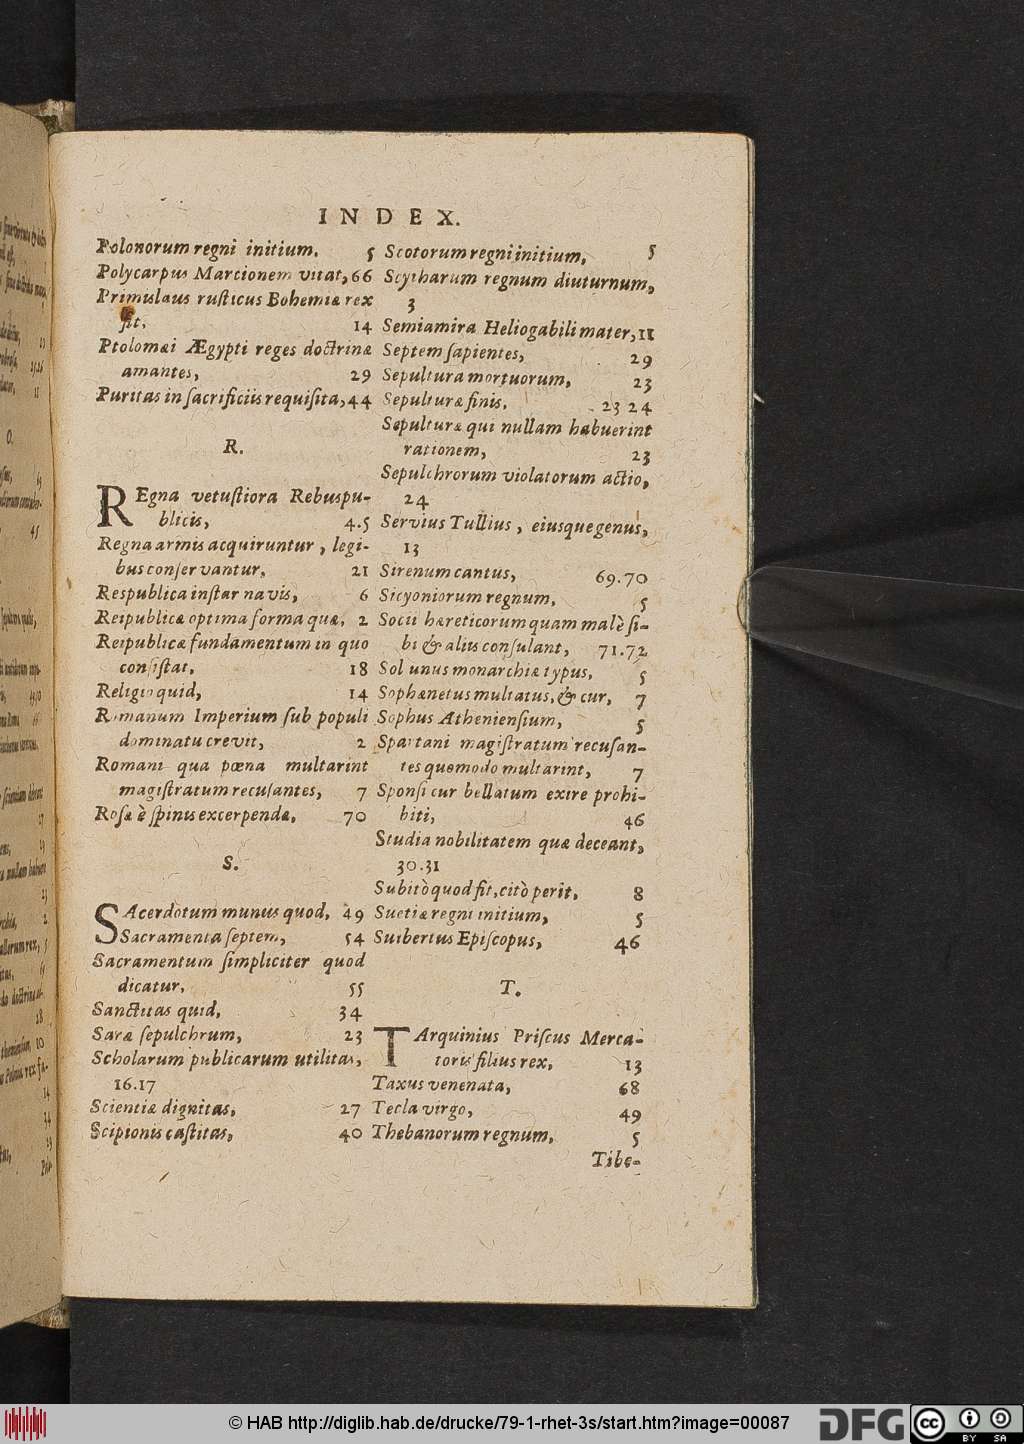 INDEX.
Polonorum regni initium. 5
Polycarpus Marcionem vitat, 66
Primislaus rusticus Bohemiæ rex
fit. 14
Ptolomæi Ægypti reges doctrinæ
amantes, 29
Puritas in sacrificiis requisita, 44
R.
REgna vetustiora Rebuspu-
blicis, 4.5
Regna armis acquiruntur, legi-
bus conservantur. 21
Respublica instar navis, 6
Reipublicæ optima forma quæ. 2
Reipublicæ fundamentum in quo
consistat. 18
Religio quid, 14
Romanum Imperium sub populi
dominatu crevit, 2
Romani qua pœna multarint
magistratum recusantes, 7
Rosæ è spinis excerpendæ. 70
S.
SAcerdotum munus quod. 49
Sacramenta septem, 54
Sacramentum simpliciter quod
dicatur. 55
Sanctitas quid. 34
Saræ sepulchrum, 23
Scholarum publicarum utilitas,
16.17
Scientiæ dignitas, 27
Scipionis castitas, 40
Scotorum regni initium, 5
Scytharum regnum diuturnum,
3
Semiamira Heliogabili mater, 11
Septem sapientes, 29
Sepultura mortuorum, 23
Sepulturæ finis. 23 24
Sepulturæ qui nullam habuerint
rationem, 23
Sepulchrorum violatorum actio,
24
Servius Tullius, eiusque genus,
13
Sirenum cantus, 69.70
Sicyoniorum regnum, 5
Socii hæreticorum quam malè si-
bi & aliis consulant, 71.72
Sol unus monarchiæ typus. 5
Sophænetus multatus, & cur, 7
Sophus Atheniensium, 5
Spartani magistratum recusan-
tes quomodo multarint, 7
Sponsi cur bellatum exire prohi-
biti, 46
Studia nobilitatem quæ deceant,
30.31
Subitò quod fit, citò perit. 8
Suetiæ regni initium, 5
Suibertus Episcopus, 46
T.
TArquinius Priscus Merca-
toris filius rex, 13
Taxus venenata, 68
Tecla virgo, 49
Thebanorum regnum, 5
Tibe-
© HAB http://diglib.hab.de/drucke/79-1-rhet-3s/start.htm?image=00087
DFG
cc BY SA